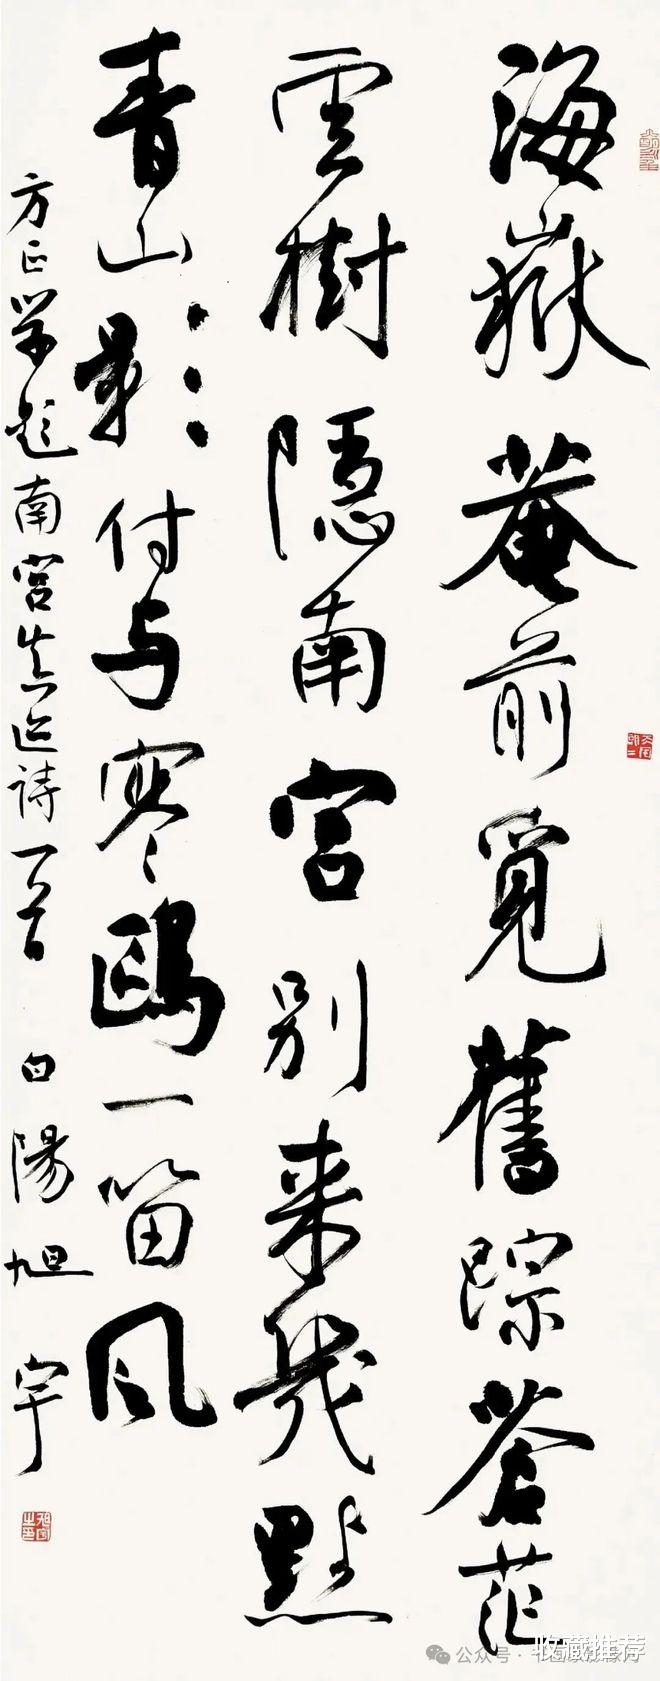 海嶽菴前覓舊踪蒼茫
雲樹隱南宮別来幾點
青山影付与寒鷗一笛風
方正学題南宮真迹詩一首 白陽旭宇
公众号
收藏推荐